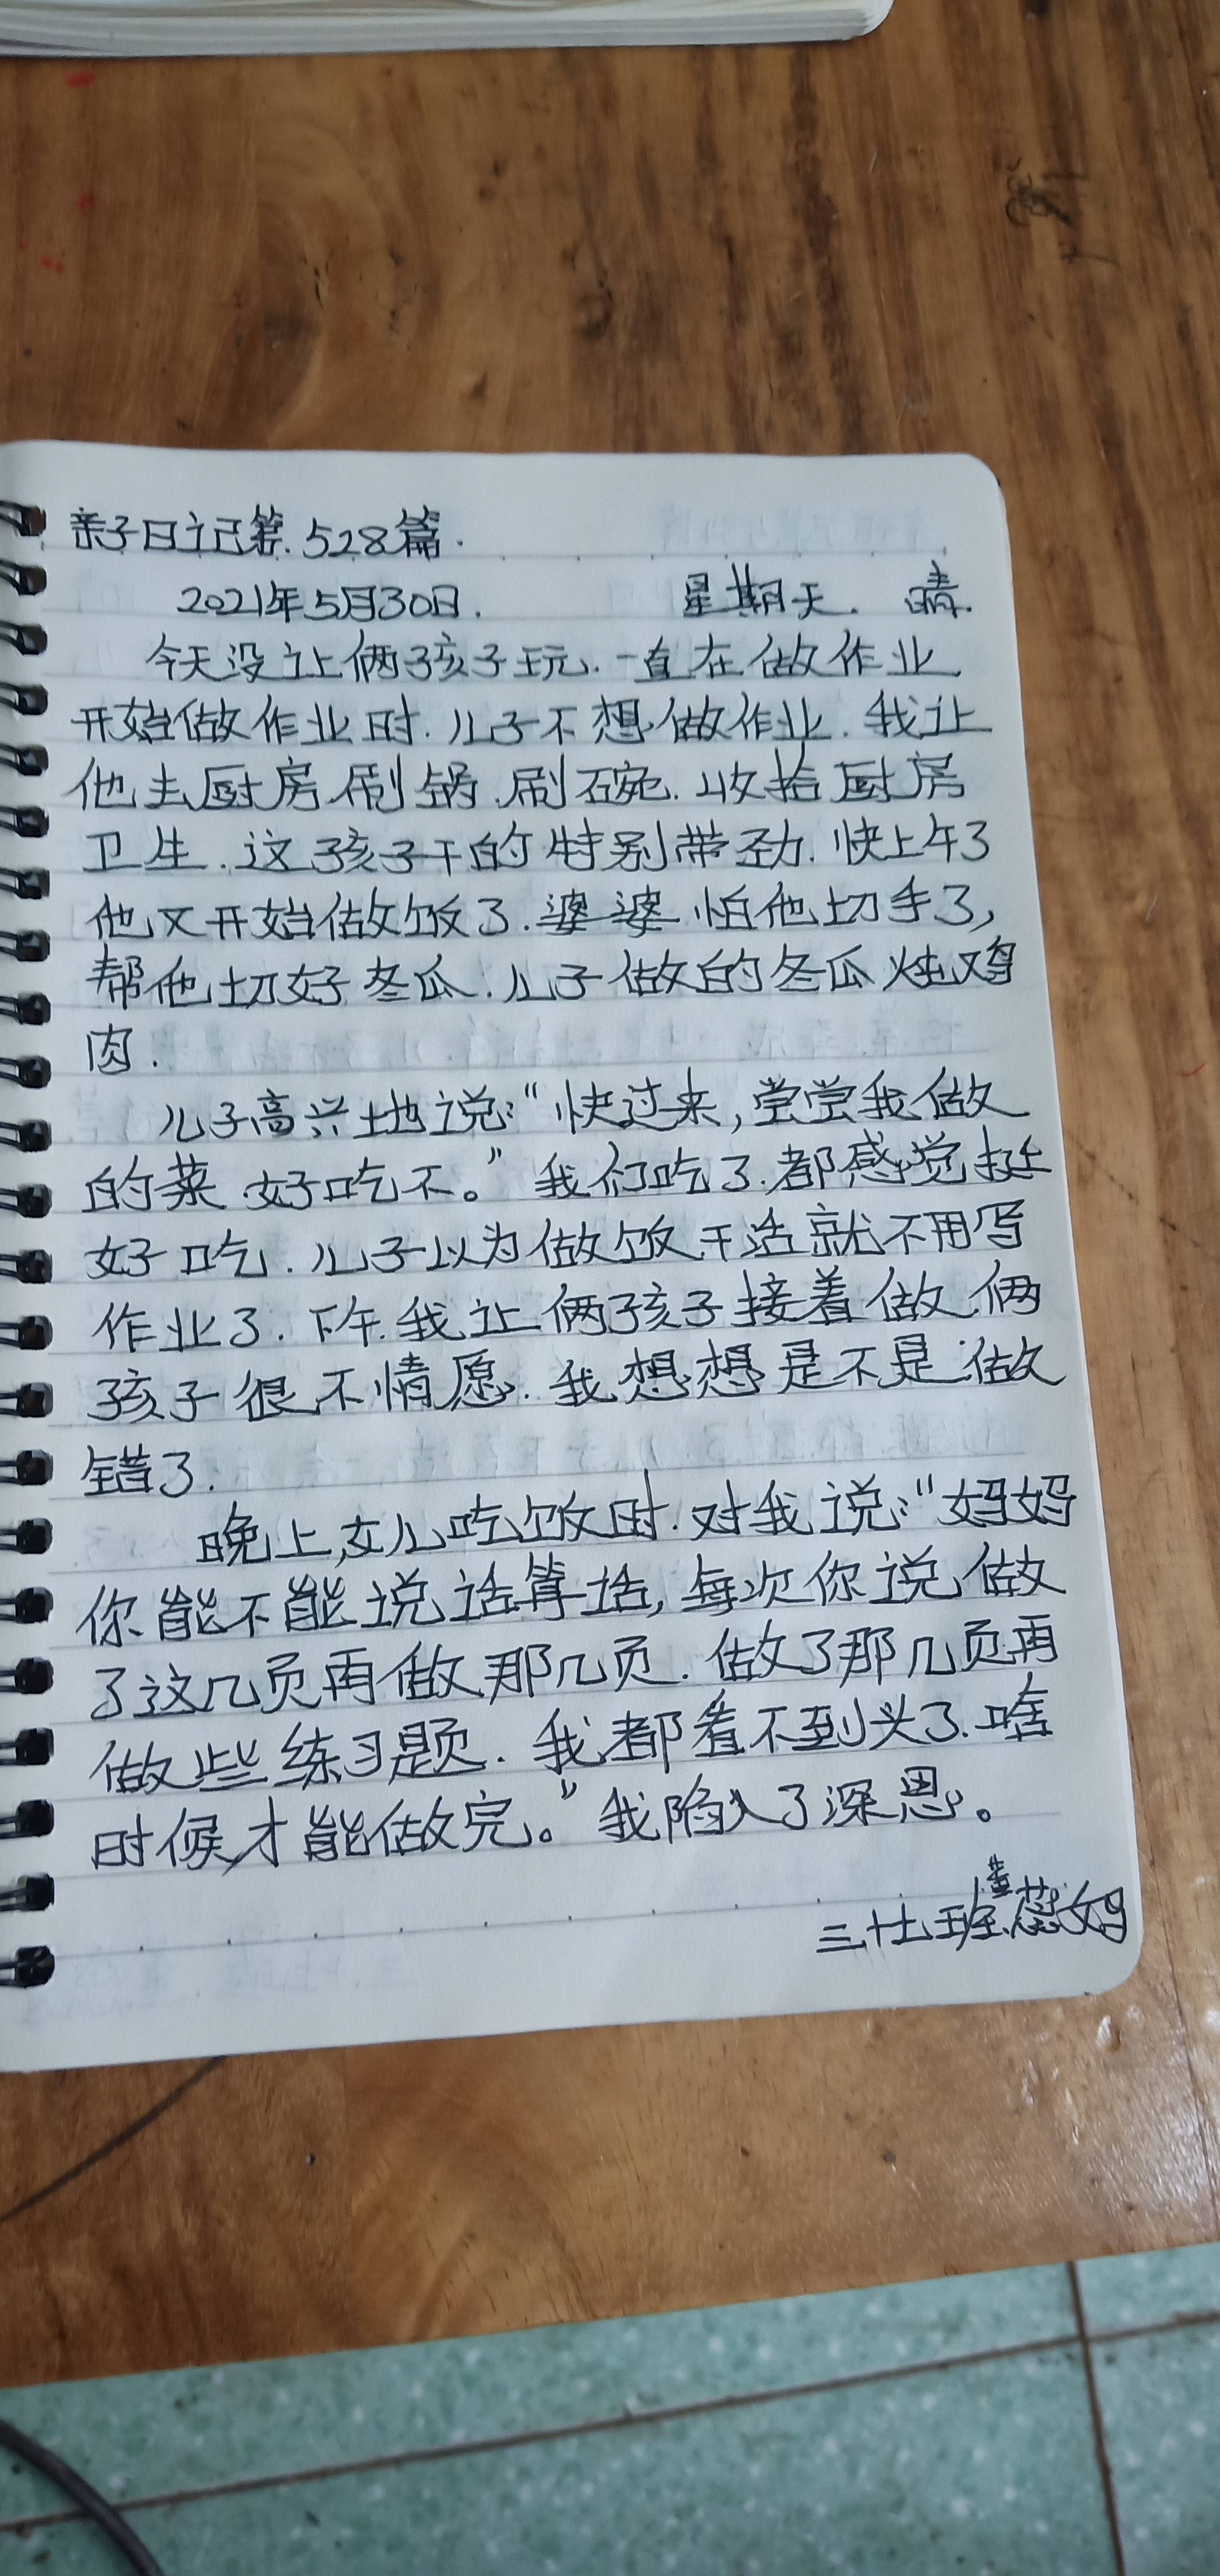 亲子日记第.528篇.
2021年5月30日. 星期天. 晴.
今天没让俩孩子玩.一直在做作业
开始做作业时.儿子不想做作业.我让
他去厨房刷锅.刷碗.收拾厨房
卫生.这孩子干的特别带劲.快上午了
他又开始做饭了.婆婆怕他切手了,
帮他切好冬瓜.儿子做的冬瓜炖鸡
肉.
儿子高兴地说:“快过来,尝尝我做
的菜.好吃不。”我们吃了.都感觉挺
好吃.儿子以为做饭干活就不用写
作业了.下午.我让俩孩子接着做.俩
孩子很不情愿.我想想是不是做
错了.
晚上,女儿吃饭时.对我说:“妈妈
你能不能说话算话,每次你说做
了这几页再做那几页.做了那几页再
做些练习题.我都看不到头了.啥
时候才能做完。”我陷入了深思。
三十七班董蕊妈